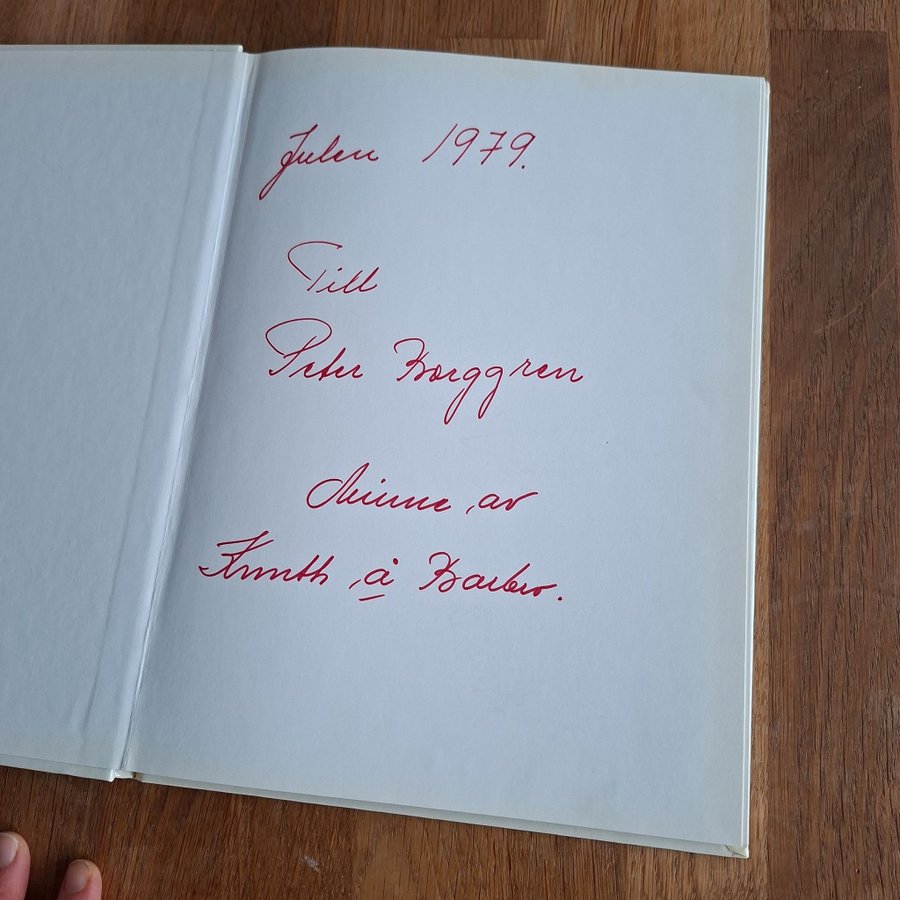 Julen 1979.
Till
Peter Borggren
Minne av
Knuth å Barbro.